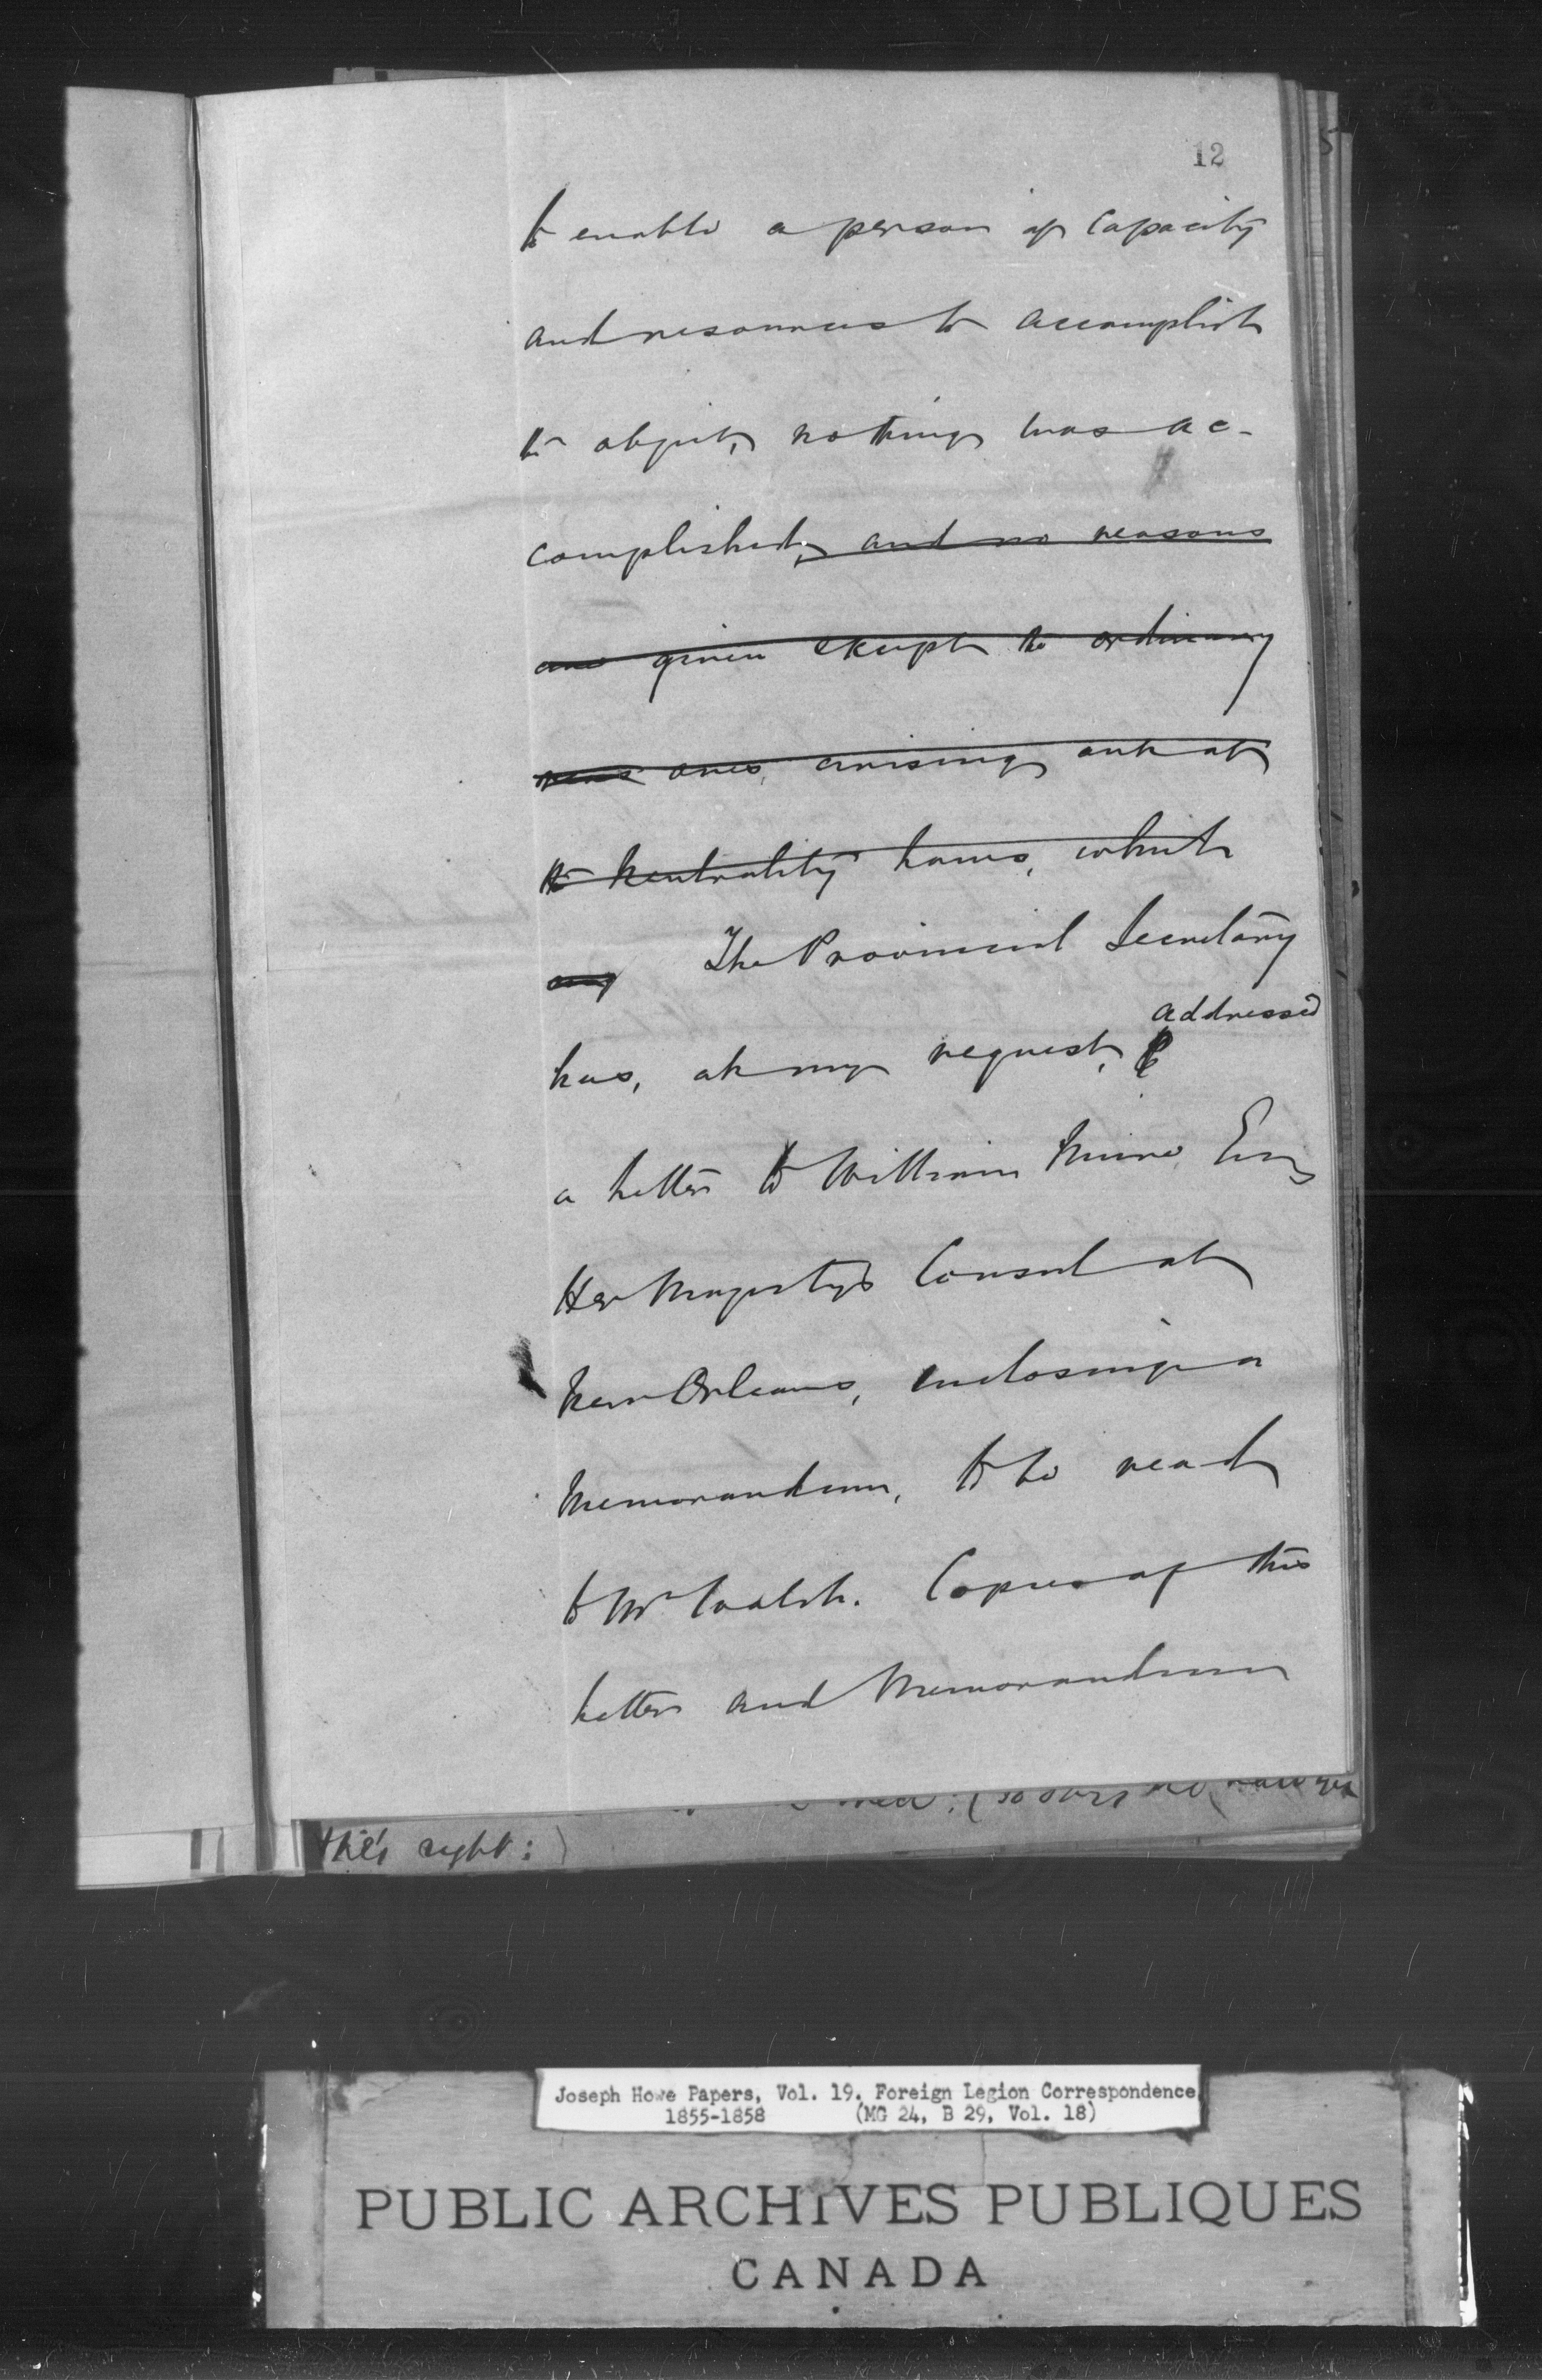 12
5
to enable a person of capacity
and resources to accomplish
the object, nothing was ac-
complished, and no reasons
are given except the ordinary
ones, arising out of
the Neutrality Laws, which
any The Provincial Secretary
addressed
has, at my request,
a letter to William Mure Esq
Her Majestys Consul at
New Orleans, enclosing a
Memorandum, to be read
to Mr Walsh. Copies of this
letter and Memorandum
this right:
Joseph Howe Papers, Vol. 19. Foreign Legion Correspondence
1855-1858 (MG 24, B 29, Vol. 18)
PUBLIC ARCHIVES PUBLIQUES
CANADA